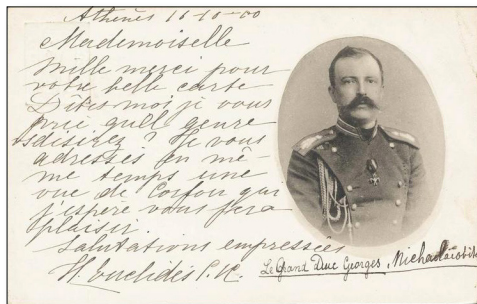 Athènes 16-10-00
Mademoiselle
Mille merci pour
votre belle carte
Dites-moi je vous
prie quel genre
désirez? Je vous
adresses en mê-
me temps une
vue de Corfou qui
j'espère vous fera
plaisir.
Salutations empressées
Le Grand Duc Georges